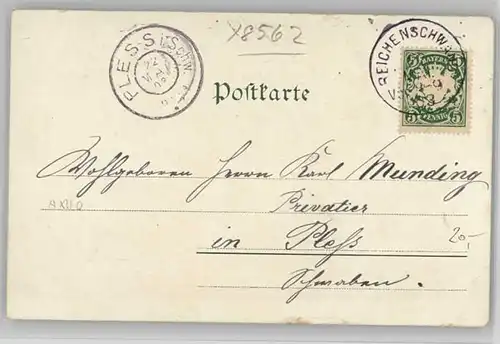 X8562
PLESS i/Schw.
REICHENSCHW
BAYERN
5 5
PFENNIG
Postkarte
Wohlgeboren Herrn Karl Munding
Privatier
in Pleß
Schwaben.
20,-